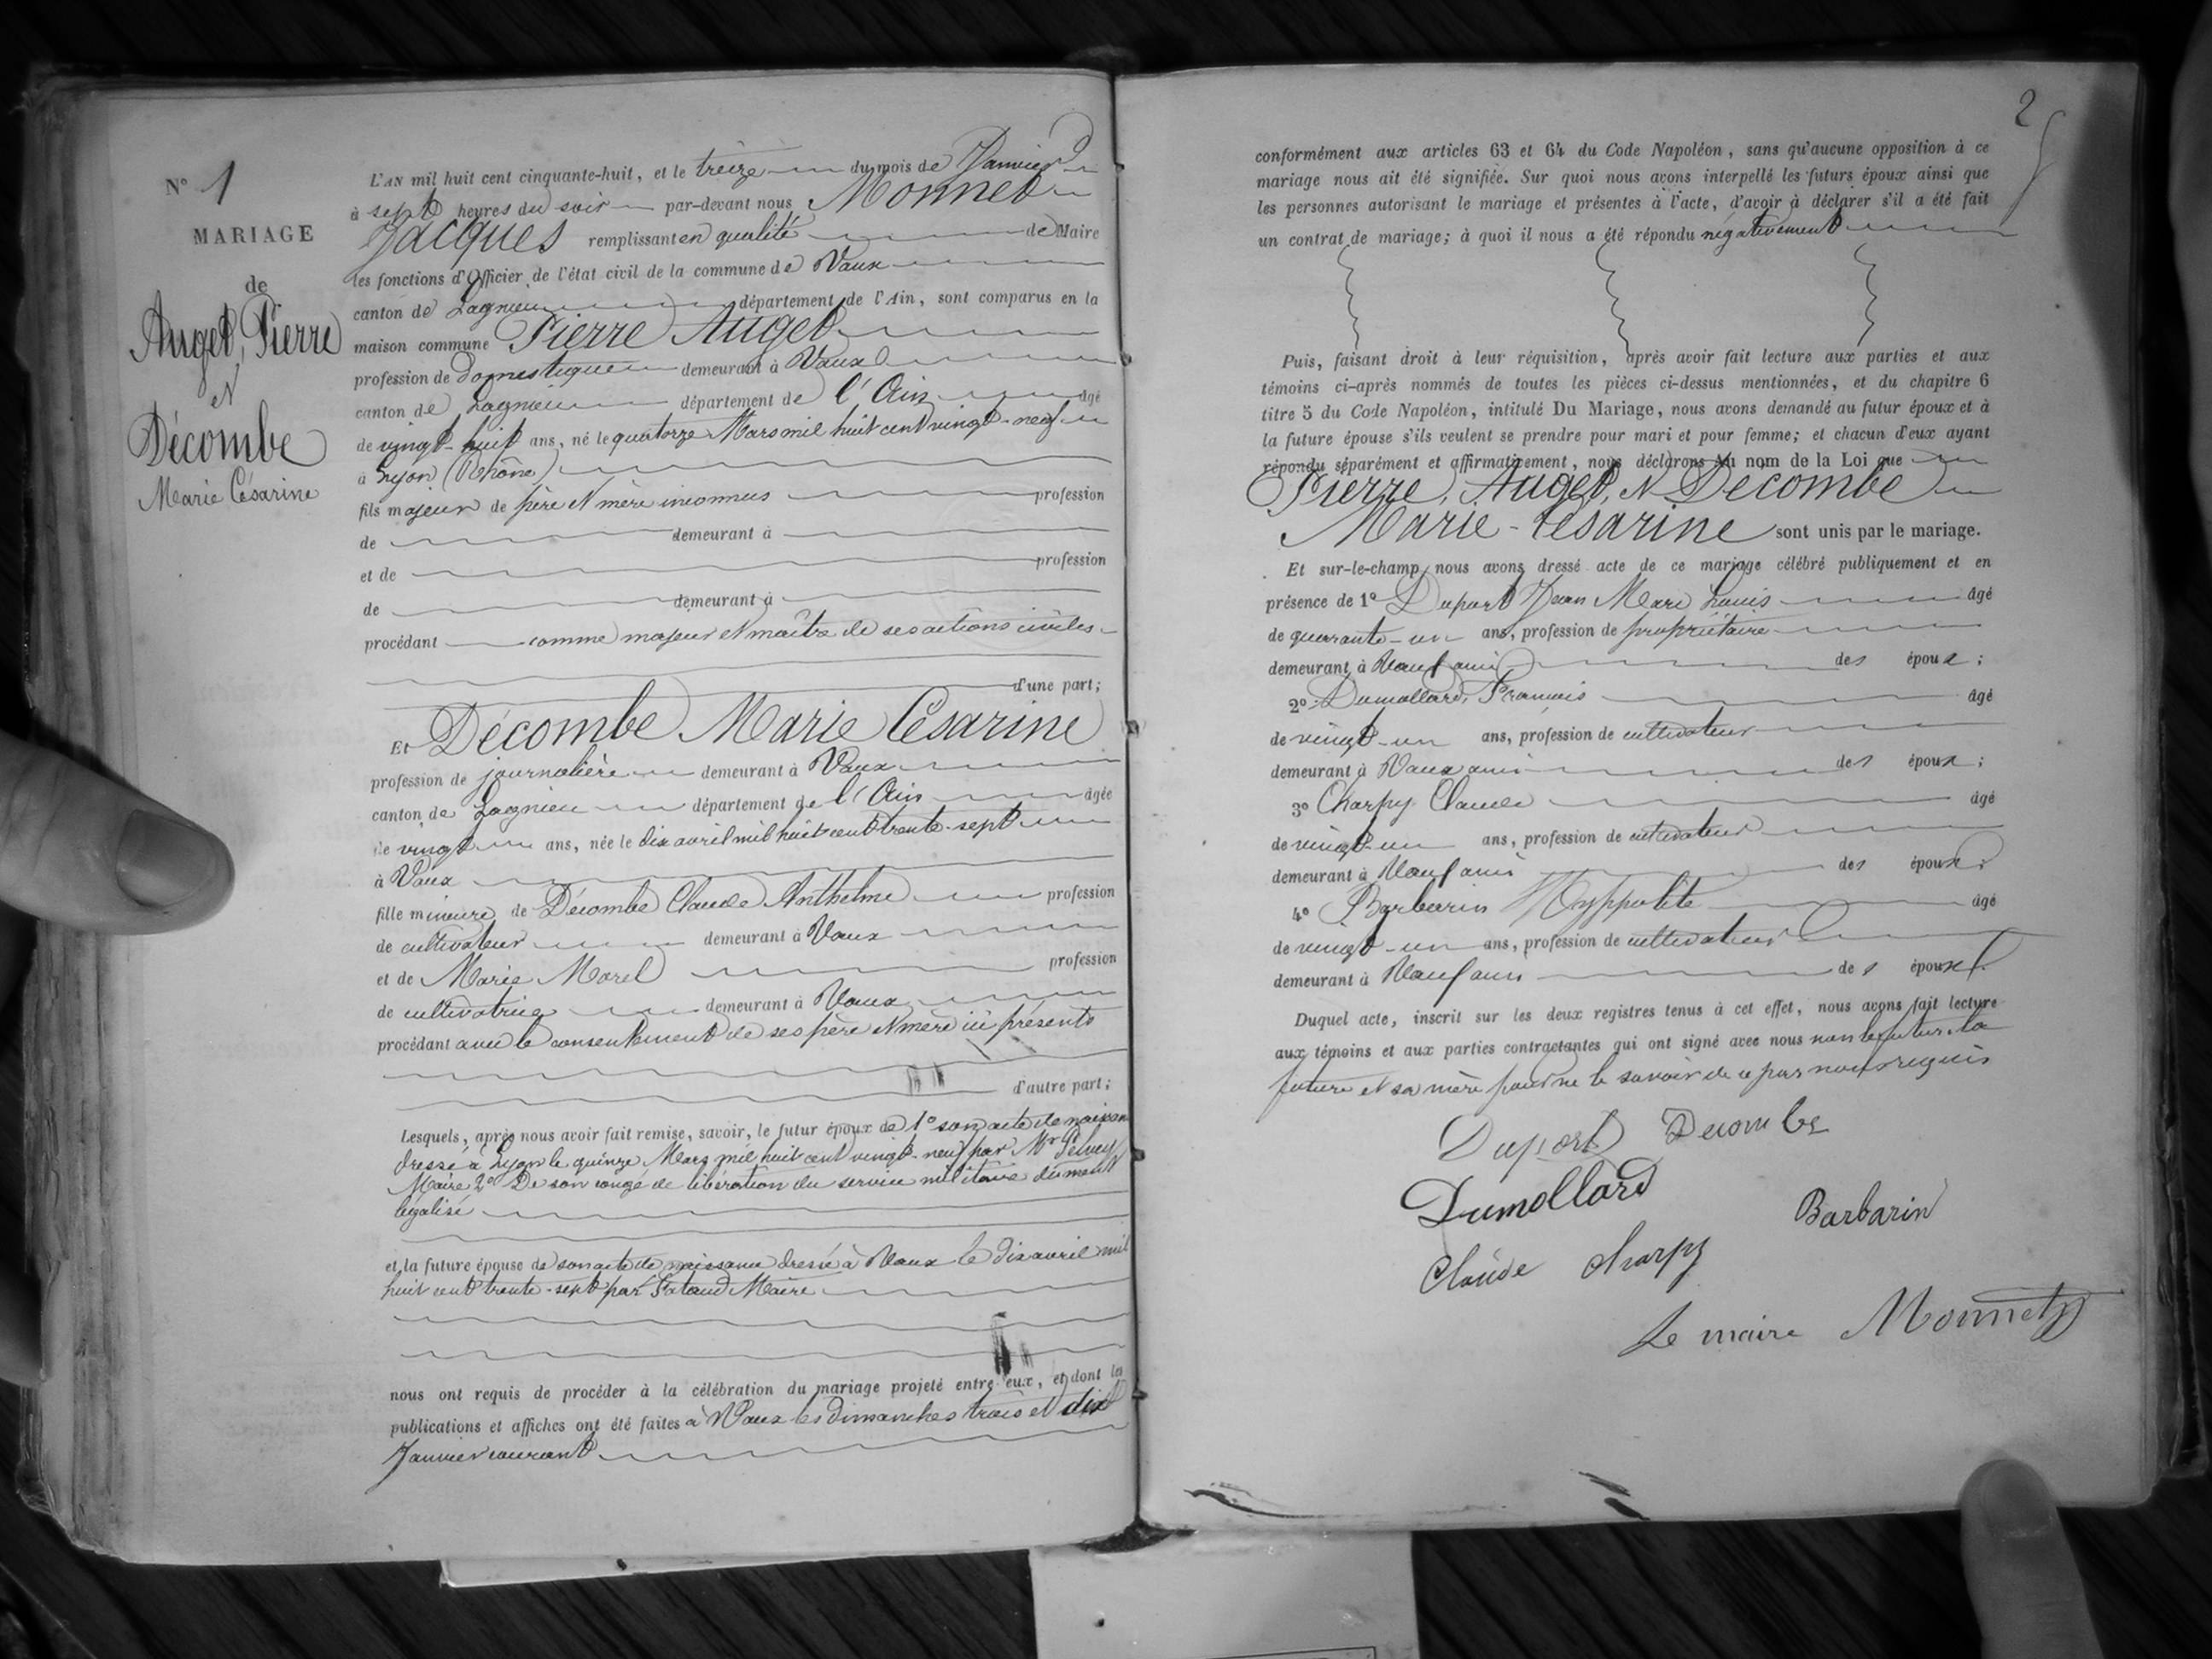 N° 1
MARIAGE
de
Auget, Pierre
et
Décombe
Marie Césarine
L'AN mil huit cent cinquante-huit, et le treize du mois de Janvier
à sept heures du soir par-devant nous Monnet
Jacques remplissant en qualité de Maire
les fonctions d'Officier de l'état civil de la commune de Vaux
canton de Lagnieu département de l'Ain, sont comparus en la
maison commune Pierre Auget
profession de Domestique demeurant à Vaux
canton de Lagnieu département de l'Ain âgé
de vingt-huit ans, né le quatorze Mars mil huit cent vingt-neuf
à Lyon (Rhône)
fils majeur de père et mère inconnus profession
de demeurant à
et de profession
de demeurant à
procédant comme majeur et maître de ses actions civiles
d'une part;
Et Décombe Marie Césarine
profession de journalière demeurant à Vaux
canton de Lagnieu département de l'Ain âgée
de vingt ans, née le dix avril mil huit cent trente-sept
à Vaux
fille mineure de Décombe Claude Anthelme profession
de cultivateur demeurant à Vaux
et de Marie Morel profession
de cultivatrice demeurant à Vaux
procédant avec le consentement de ses père et mère ici présents
d'autre part;
Lesquels, après nous avoir fait remise, savoir, le futur époux de 1° son acte de naissan
dressé à Lyon le quinze Mars mil huit cent vingt-neuf par Mr
Maire 2° De son congé de libération du service militaire dûment
légalisé
et la future épouse de son acte de naissance dressé à Vaux le dix avril mil
huit cent trente-sept par Maire
nous ont requis de procéder à la célébration du mariage projeté entre eux, et dont les
publications et affiches ont été faites à Vaux les dimanches trois et dix
Janvier courant
2
conformément aux articles 63 et 64 du Code Napoléon, sans qu'aucune opposition à ce
mariage nous ait été signifiée. Sur quoi nous avons interpellé les futurs époux ainsi que
les personnes autorisant le mariage et présentes à l'acte, d'avoir à déclarer s'il a été fait
un contrat de mariage; à quoi il nous a été répondu négativement
Puis, faisant droit à leur réquisition, après avoir fait lecture aux parties et aux
témoins ci-après nommés de toutes les pièces ci-dessus mentionnées, et du chapitre 6
titre 5 du Code Napoléon, intitulé Du Mariage, nous avons demandé au futur époux et à
la future épouse s'ils veulent se prendre pour mari et pour femme; et chacun d'eux ayant
répondu séparément et affirmativement, nous déclarons au nom de la Loi que
Pierre, Auget, et Décombe
Marie-Césarine sont unis par le mariage.
Et sur-le-champ nous avons dressé acte de ce mariage célébré publiquement et en
présence de 1° Duport Jean Marie Louis âgé
de quarante-un ans, profession de propriétaire
demeurant à Vaux ami des époux;
2° Dumollard, François âgé
de vingt-un ans, profession de cultivateur
demeurant à Vaux ami des époux;
3° Charpy Claude âgé
de vingt-un ans, profession de cultivateur
demeurant à Vaux ami des époux;
4° Barbarin Hyppolite âgé
de vingt-un ans, profession de cultivateur
demeurant à Vaux ami des époux.
Duquel acte, inscrit sur les deux registres tenus à cet effet, nous avons fait lecture
aux témoins et aux parties contractantes qui ont signé avec nous non le futur, la
future et sa mère pour ne le savoir de ce par nous requis
Duport Decombe
Dumollard
Barbarin
Claude charpy
Le maire Monnet